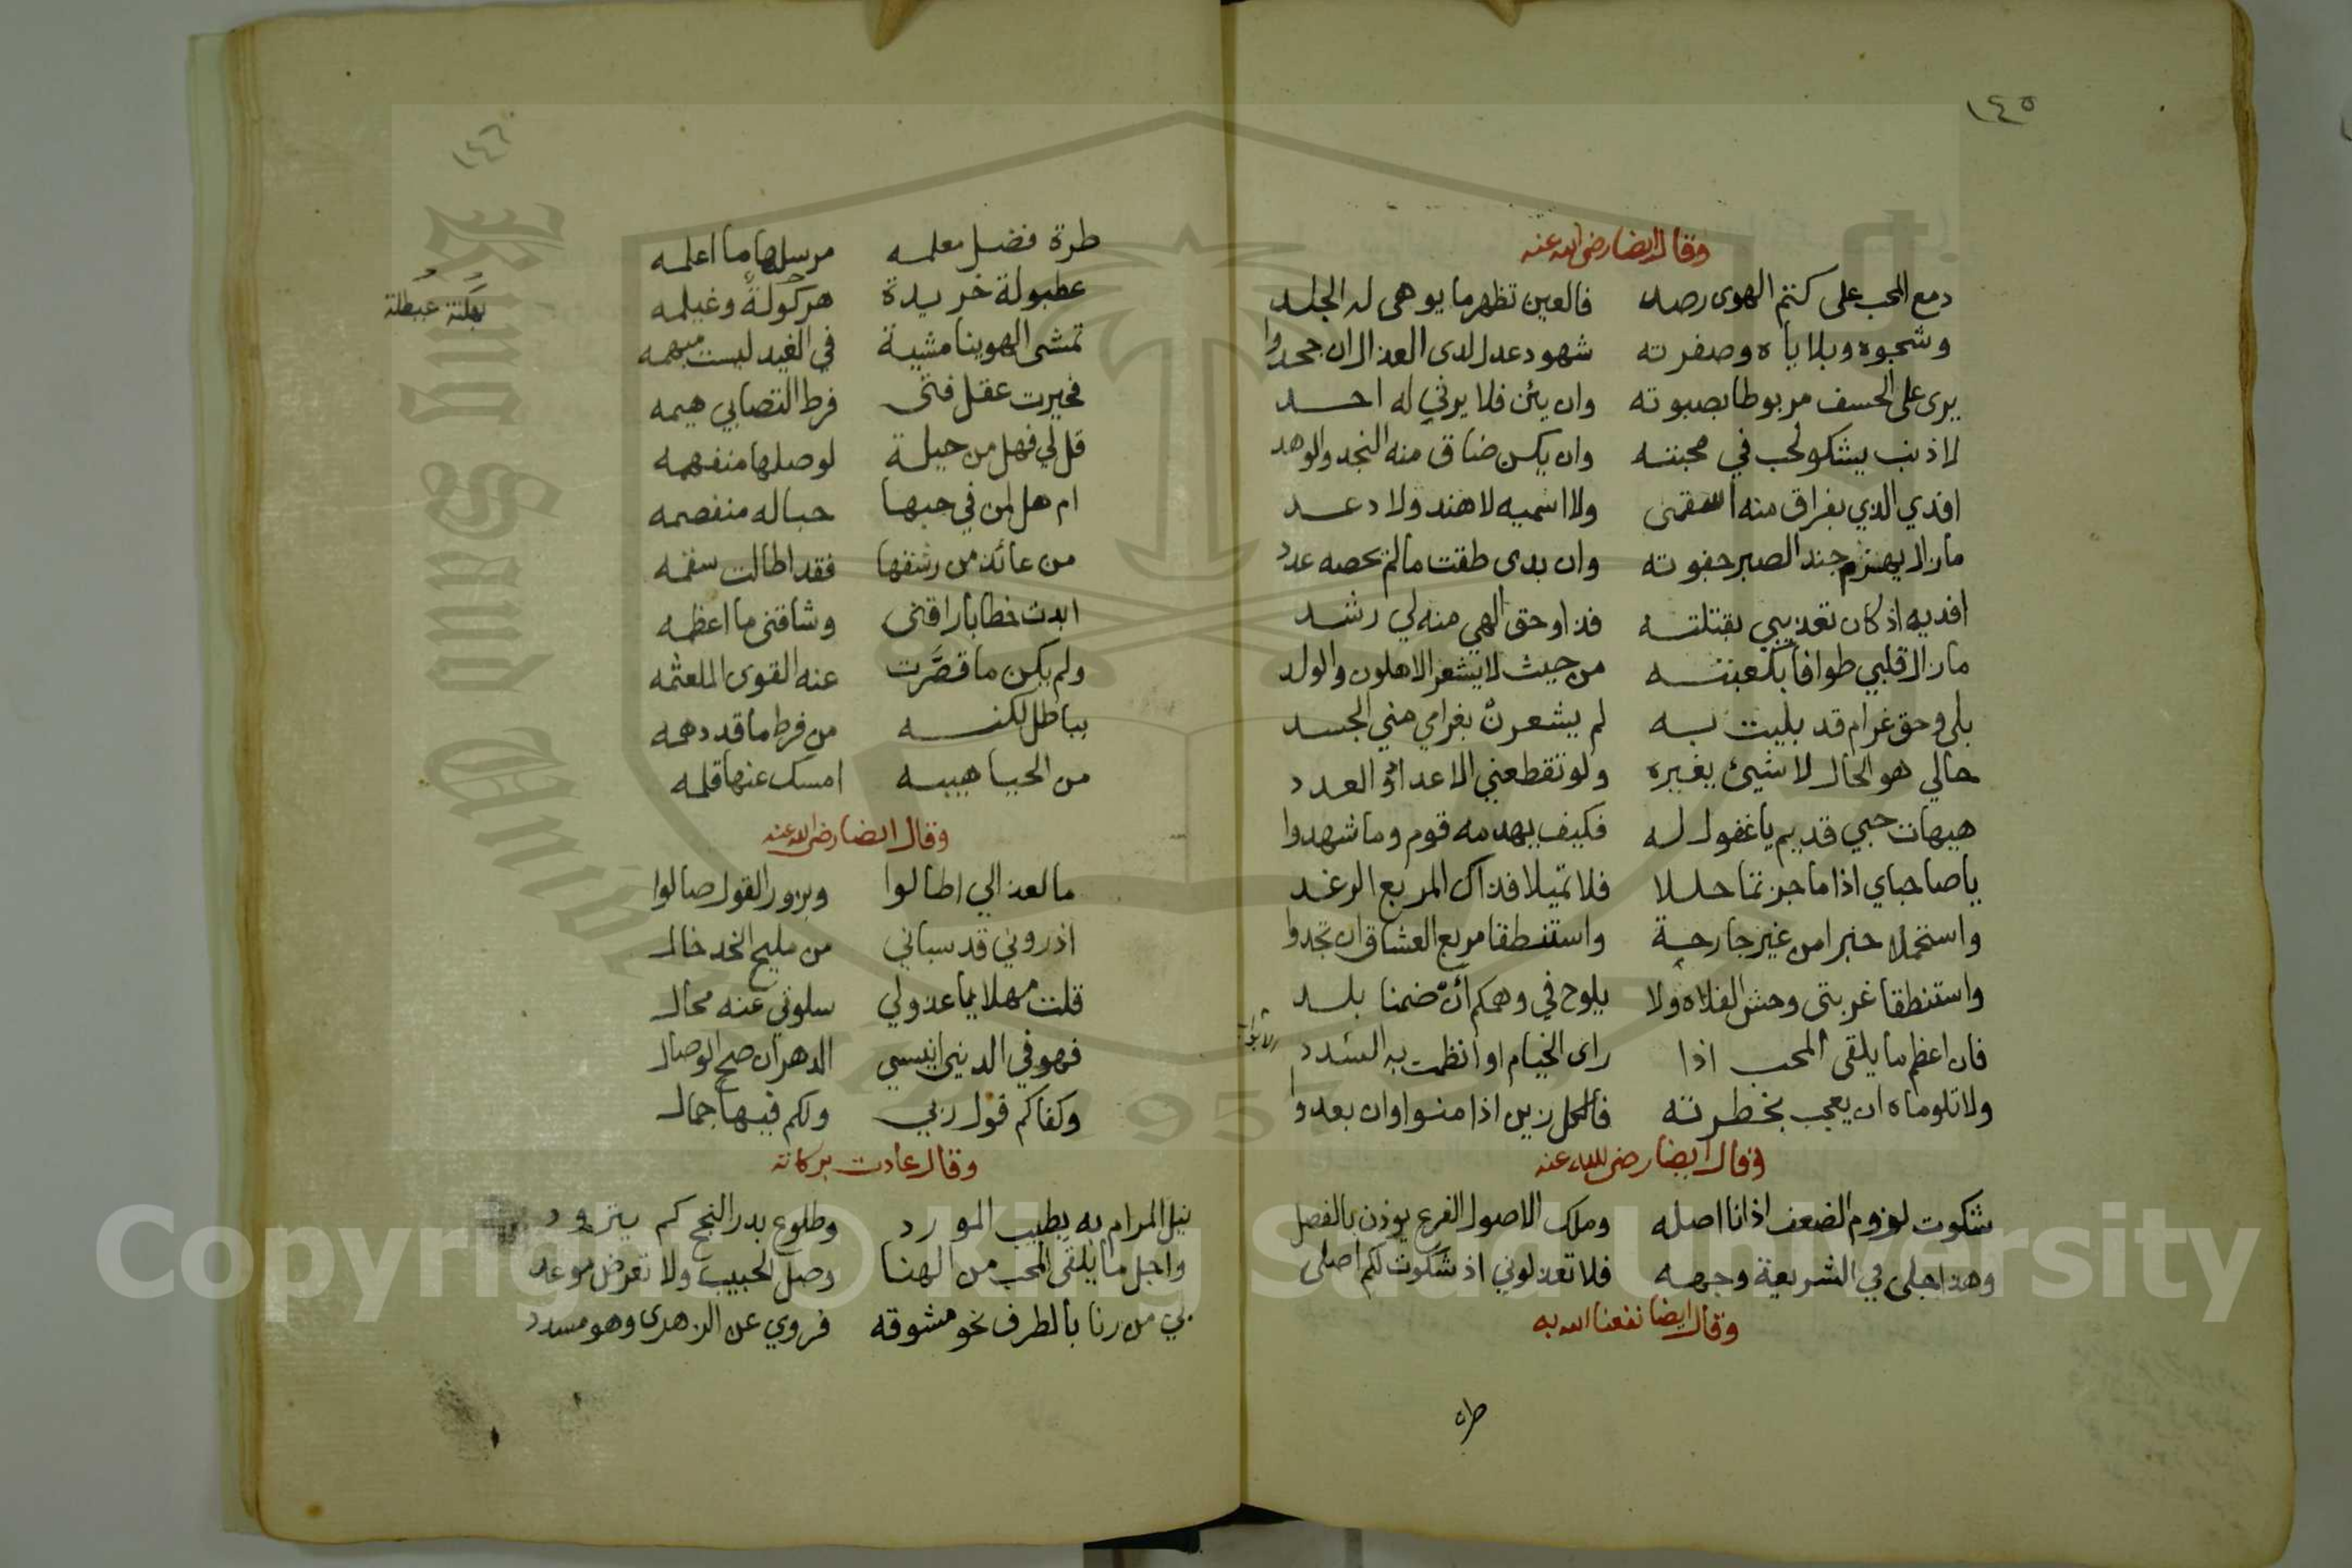 ١٤٥
وقال ايضا رضى الله عنه
دمع المحب على كتم الهوى رصد فالعين تظهر ما يوهى له الجلد
وشجوه وبلاياه وصفرته شهود عدل لدى العذال ان جحدوا
يرى على الخسف مربوطا بصبوته وان يئن فلا يرثي له احد
لا ذنب يشكو لحب في محبته وان يكن ضاق منه النجد والوهد
افدي الذي بفراق منه اسقمني ولا اسميه لا هند ولا دعد
مازال يهزم جند الصبر جفوته وان بدى طقت مالم يحصه عدد
افديه اذ كان تعذيبي بقتلته فذا وحق الهي منه لي رشد
مازال قلبي طوافا بكعبته من حيث لا يشعر الاهلون والولد
بلى وحق غرام قد بليت به لم يشعرن بغرامي مني الجسد
حالي هو الحال لا شيئ يغيره ولو تقطعني الاعداؤ العدد
هيهات حبي قديم يا غفول له فكيف يهدمه قوم وما شهدوا
يا صاحباي اذا ما جزتما حللا فلا تميلا فذاك المربع الرغد
واستحملا خبرا من غير جارحة واستنطقا مربع العشاق ان تجدوا
واستنطقا غربتى وحش الفلاه ولا يلوح في وهمكم أن ضمنا بلد
فان اعظم ما يلقى المحب اذا راى الخيام او انظمت به السدد
ولا تلوماه ان يعجب بخطرته فالكل زين اذا منوا وان بعدوا
وقال ايضا رضى الله عنه
شكوت لوزوم الضعف اذ انا اصله وملك الاصول الفرع يوذن بالفصل
وهذا جلى في الشريعة وجهه فلا تعذلوني اذ شكوت لكم اصلى
وقال ايضا نفعنا الله به
طره
١٤٦
طرة فضل معلمه مرسلها ما اعلمه
عطبولة خريدة هركولة وغيلمه
بهكنة عبطلة
تمشى الهوينا مشية في الغيد ليست مبهمه
فحيرت عقل فتى فرط التصابي هيمه
قل لي فهل من حيلة لوصلها منفهمه
ام هل لمن في حبها حباله منفصمه
من عائد من رشفها فقد اطالت سقمه
ابدت خطابا راقنى وشاقنى ما اعظمه
ولم يكن ما قصَّرت عنه القوى الملعثمه
بباطل لكنه من فرط ما قد دهمه
من الحيا هيبه امسك عنها قلمه
وقال ايضا رضى الله عنه
ما لعذالي اطالوا وبزور القول صالوا
اذروني قد سباني من مليح الخد خال
قلت مهلا يا عذولي سلوتي عنه محال
فهو في الدنيا انيسي الدهر ان صح الوصال
وكفاكم قول ربي ولكم فيها جمال
وقال عادت بركاته
نيل المرام به يطيب المورد وطلوع بدر النجح كم يتردد
واجل ما يلقى المحب من الهنا وصل الحبيب ولا تعرض موعد
بي من رنا بالطرف نحو مشوقه فروي عن الزهرى وهو مسدد
Copyright © King Saud University